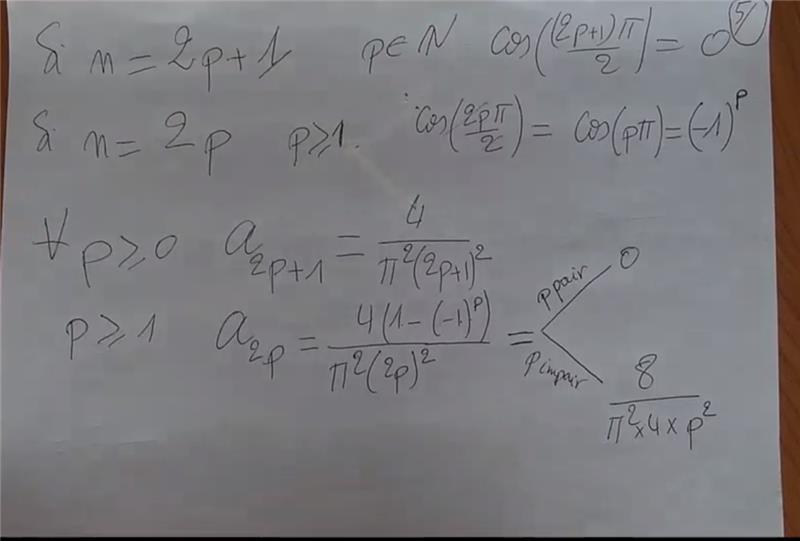 Si n = 2p+1 p ∈ N cos((2p+1)π/2) = 0 5/
Si n = 2p p ≥ 1. cos(2pπ/2) = cos(pπ) = (-1)^p
∀ p ≥ 0 a_{2p+1} = 4/(π²(2p+1)²)
p ≥ 1 a_{2p} = 4(1-(-1)^p)/(π²(2p)²) =
p pair 0
p impair 8/(π²×4×p²)